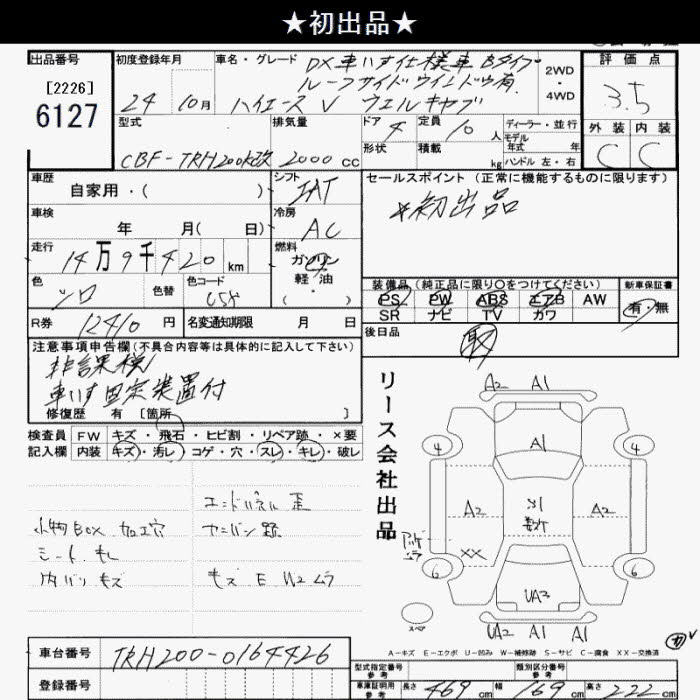 ★初出品★
出品番号
[2226]
6127
初度登録年月
24 10月
車名・グレード
DX 車いす仕様車 Bタイプ
ルーフサイドウインドウ有
ハイエース V ウェルキャブ
2WD
・
4WD
評価点
3.5
外装 内装
C C
型式
CBF-TRH200K改
排気量
2000 cc
ドア 4
定員 10 人
形状
積載 kg
ディーラー・並行
モデル
年式 年
ハンドル 左・右
車歴
自家用・( )
シフト
IAT
セールスポイント (正常に機能するものに限ります)
*初出品
車検
年 月( 日)
冷房
AC
走行
14万9千420 km
燃料
ガソリン
軽・油
( ・ )
色
シロ
色替
色コード
058
装備品 (純正品に限り○をつけてください)
PS PW ABS エアB AW
SR ナビ TV カワ
新車保証書
有・無
R券
12410 円
名変通知期限 月 日
後日品
取
注意事項申告欄 (不具合内容等は具体的に記入して下さい)
非課税
車いす固定装置付
修復歴 有 [箇所 ]
リース会社出品
検査員
記入欄
FW キズ・飛石・ヒビ割・リペア跡・×要
内装 キズ・汚レ・コゲ・穴・スレ・キレ・破レ
エンドパネル 歪
小物BOX 加工穴
ヤニバン 跡
シート キレ
内バリ キズ
キズ E W2 ムラ
A2 A1
4 A1 4
A2 A2
XX
6 6
UA3
UA2 A1 A1
スペア
A-キズ E-エクボ U-凹み W-補修跡 S-サビ C-腐食 XX-交換済
車台番号
TRH200-0164426
登録番号
型式指定番号
参考
類別区分番号
参考
車庫証明用
参考
長さ 469 cm
幅 169 cm
高さ 222 cm